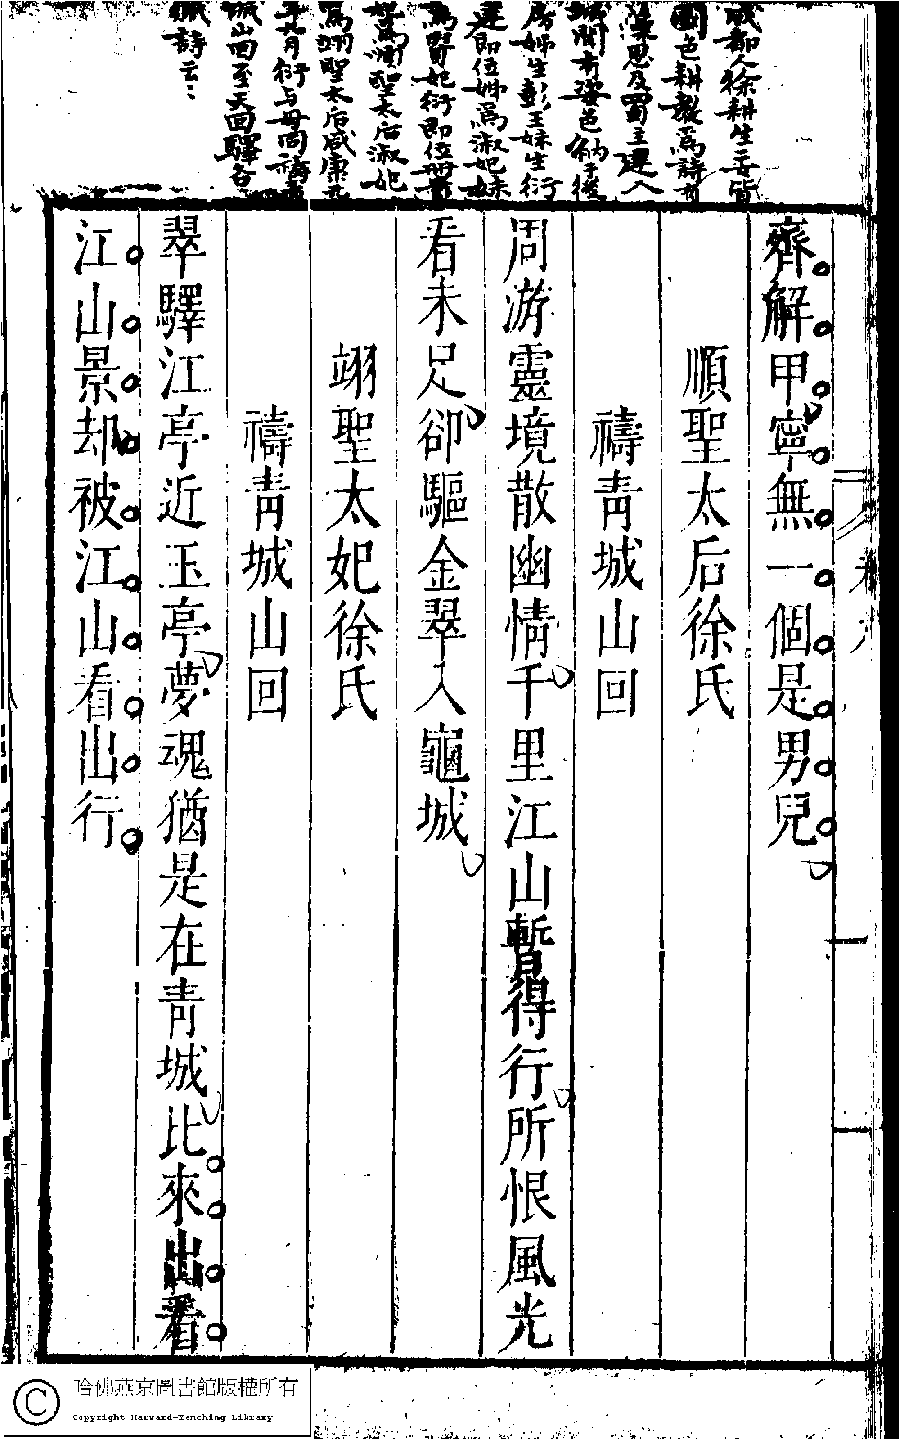 成都人徐耕生二女皆
國色耕教爲詩有
藻思及蜀主建入
城聞有姿色納于後
房姊生彭王妹生衍
建即位姊爲淑妃妹
爲賢妃衍即位冊賢
妃爲順聖太后淑妃
爲翊聖太后咸康元
年九月衍与母同禱青
城山回至天回驛各
賦詩云云
齊解甲寧無一個是男兒
順聖太后徐氏
禱靑城山回
周游靈境散幽情千里江山暫得行所恨風光
看未足卻驅金翠入龜城
翊聖太妃徐氏
禱靑城山回
翠驛江亭近玉亭夢魂猶是在靑城比來出看
江山景却被江山看出行
哈佛燕京圖書館版權所有
Copyright Harvard-Yenching Library